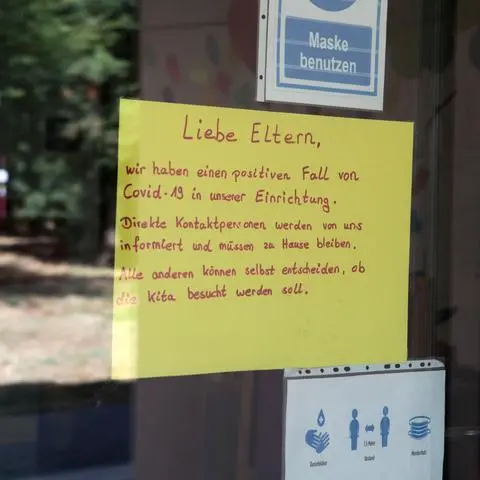 Maske
benutzen
Liebe Eltern,
wir haben einen positiven Fall von
Covid-19 in unserer Einrichtung.
Direkte Kontaktpersonen werden von uns
informiert und müssen zu Hause bleiben.
Alle anderen können selbst entscheiden, ob
die Kita besucht werden soll.
1,5 Meter
Abstand